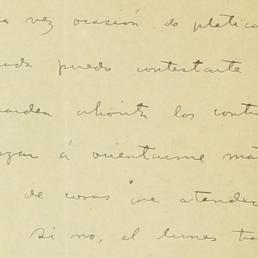 a vez ocasión de platica
ada puedo contestarte
uarden ahorita los cont
zar á orientarme má
de cosas que atender
si no, el lunes tra